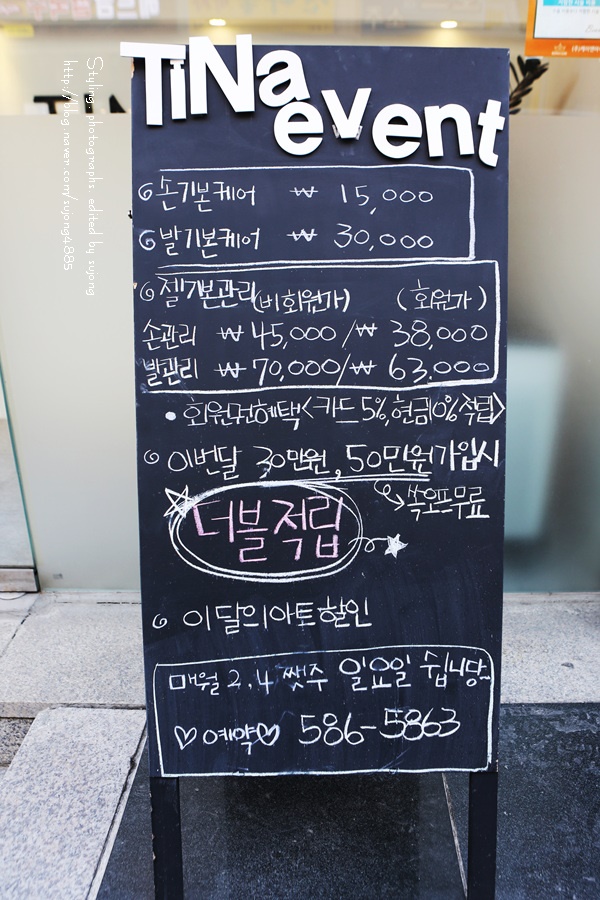 TiNa
event
손기본케어 ₩ 15,000
발기본케어 ₩ 30,000
젤기본관리(비회원가) (회원가)
손관리 ₩45,000/₩ 38,000
발관리 ₩70,000/₩ 63,000
• 회원권혜택<카드5%,현금10%적립>
이번달 30만원, 50만원가입시
쏙오프무료
더블적립
이달의아트할인
매월 2,4 쨋주 일요일 쉽니당~
♡예약♡ 586-5863
Styling. photographs. edited by sujong
http://blog.naver.com/sujong4885